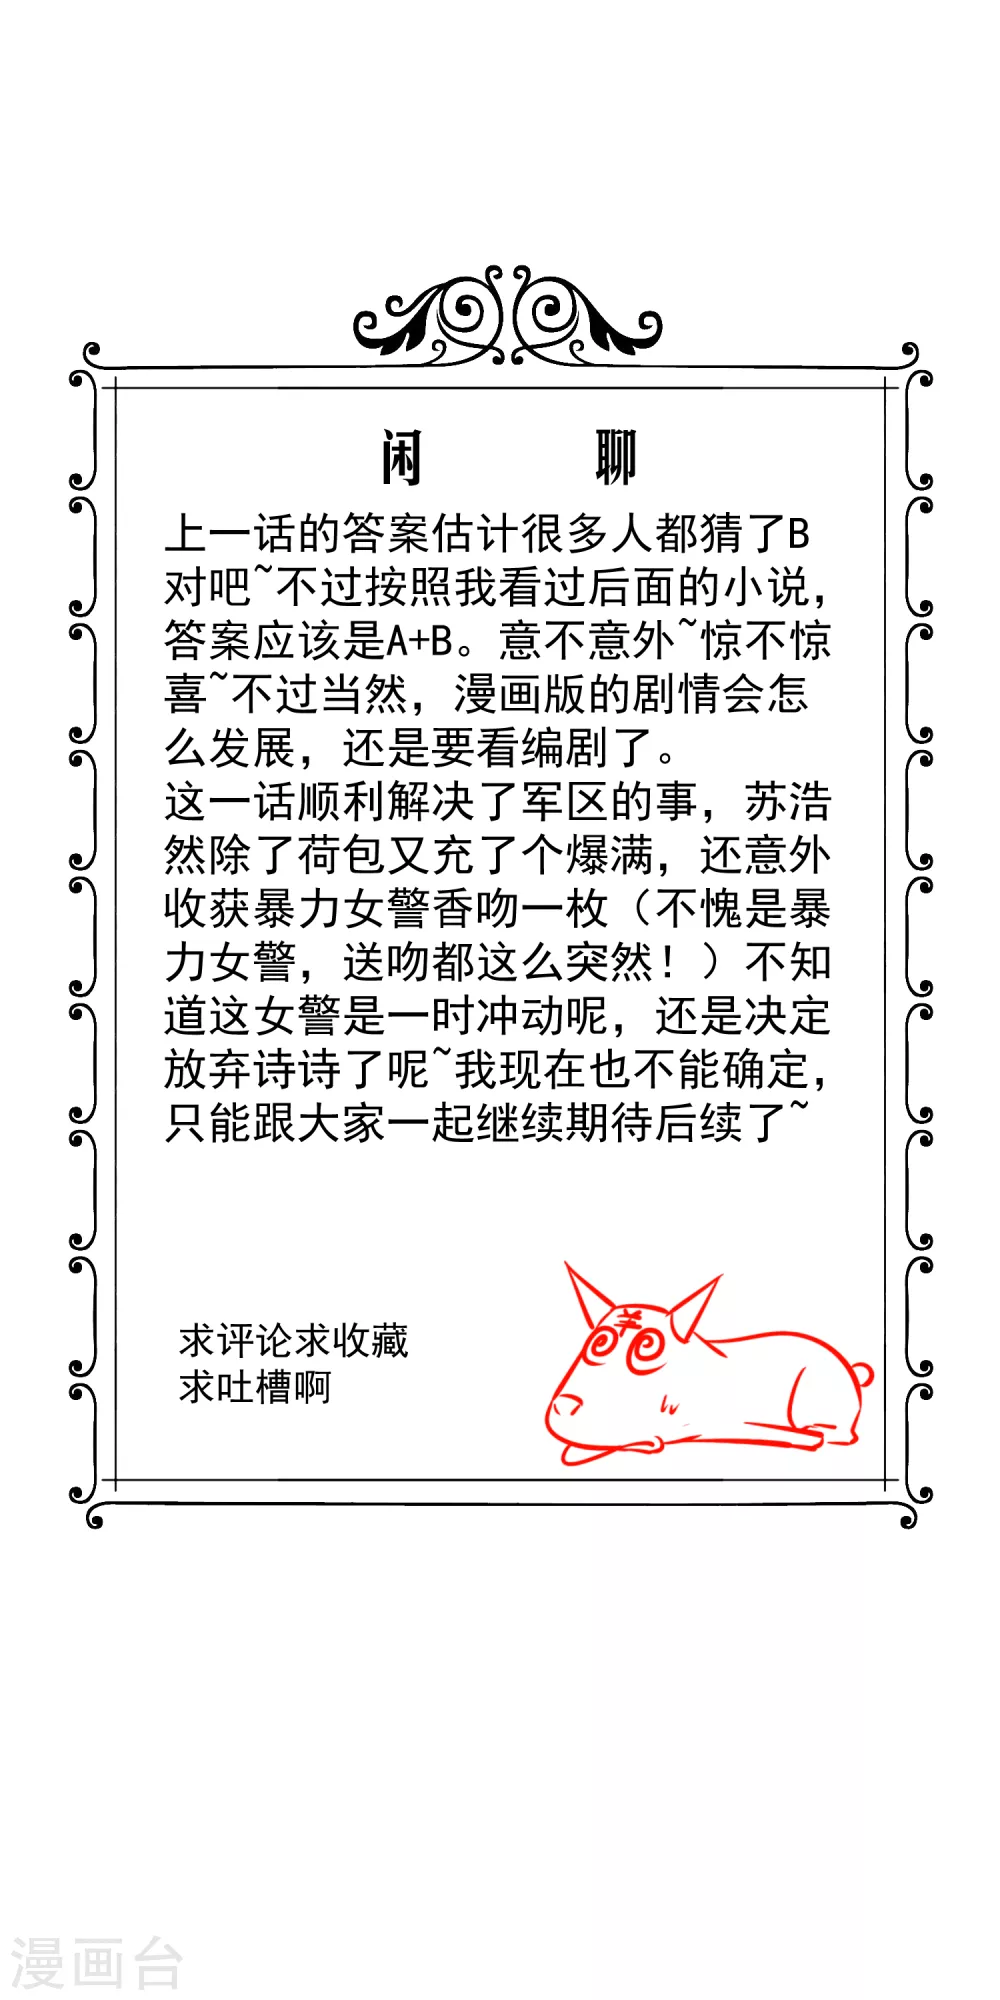 闲 聊
上一话的答案估计很多人都猜了B
对吧~不过按照我看过后面的小说，
答案应该是A+B。意不意外~惊不惊
喜~不过当然，漫画版的剧情会怎
么发展，还是要看编剧了。
这一话顺利解决了军区的事，苏浩
然除了荷包又充了个爆满，还意外
收获暴力女警香吻一枚（不愧是暴
力女警，送吻都这么突然！）不知
道这女警是一时冲动呢，还是决定
放弃诗诗了呢~我现在也不能确定，
只能跟大家一起继续期待后续了~
求评论求收藏
求吐槽啊
漫画台